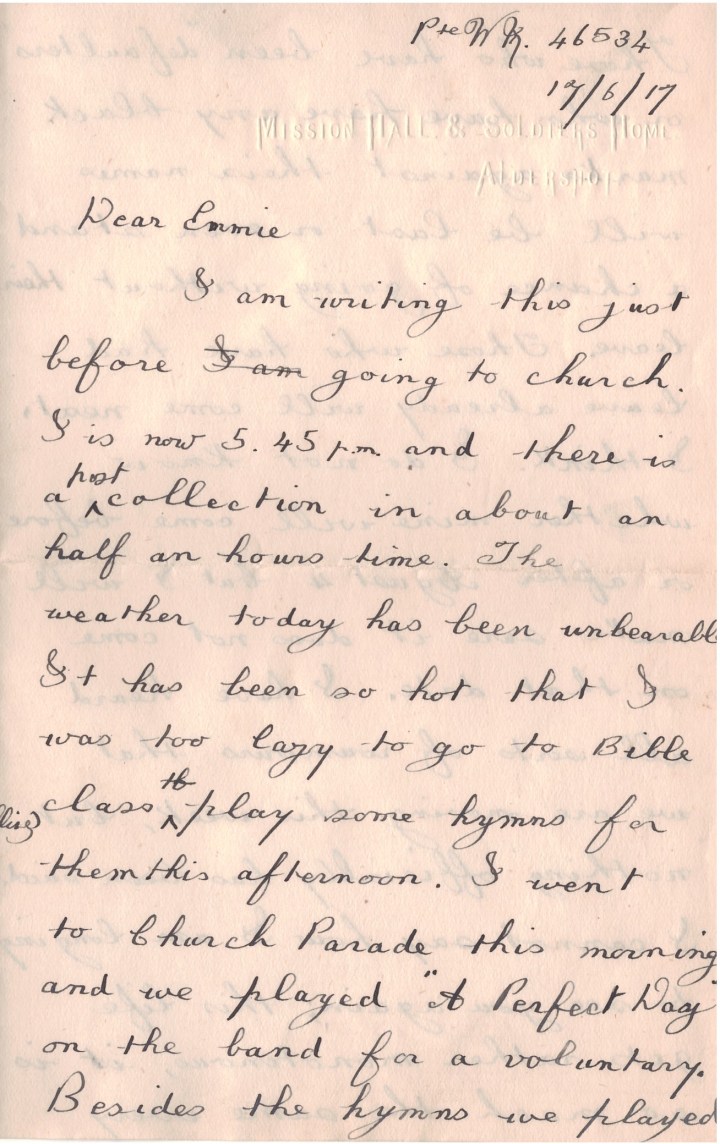 Pte W R. 46534
17/6/17
MISSION HALL & SOLDIERS HOME
ALDERSHOT
Dear Emmie
I am writing this just
before I am going to church.
I is now 5.45 p.m. and there is
a post collection in about an
half an hours time. The
weather today has been unbearable
It has been so hot that I
was too lazy to go to Bible
class to play some hymns for
them this afternoon. I went
to Church Parade this morning
and we played "A Perfect Day"
on the band for a voluntary.
Besides the hymns we played